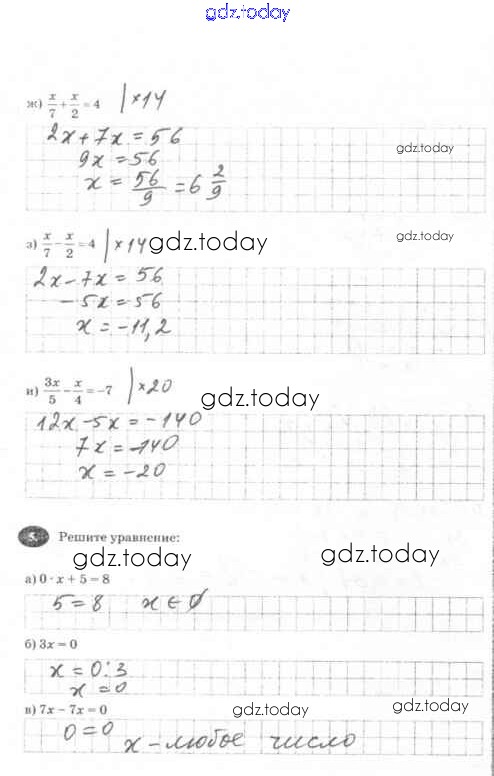 gdz.today
ж) x/7 + x/2 = 4 | ×14
2x + 7x = 56
gdz.today
9x = 56
x = 56/9 = 6 2/9
з) x/7 - x/2 = 4 | ×14 gdz.today
gdz.today
2x - 7x = 56
-5x = 56
x = -11,2
и) 3x/5 - x/4 = -7 | ×20
gdz.today
12x - 5x = -140
7x = -140
x = -20
5. Решите уравнение:
gdz.today gdz.today
а) 0 · x + 5 = 8
5 = 8 x ∈ ∅
б) 3x = 0
x = 0:3
x = 0
в) 7x - 7x = 0
gdz.today gdz.today
0 = 0
x - любое число